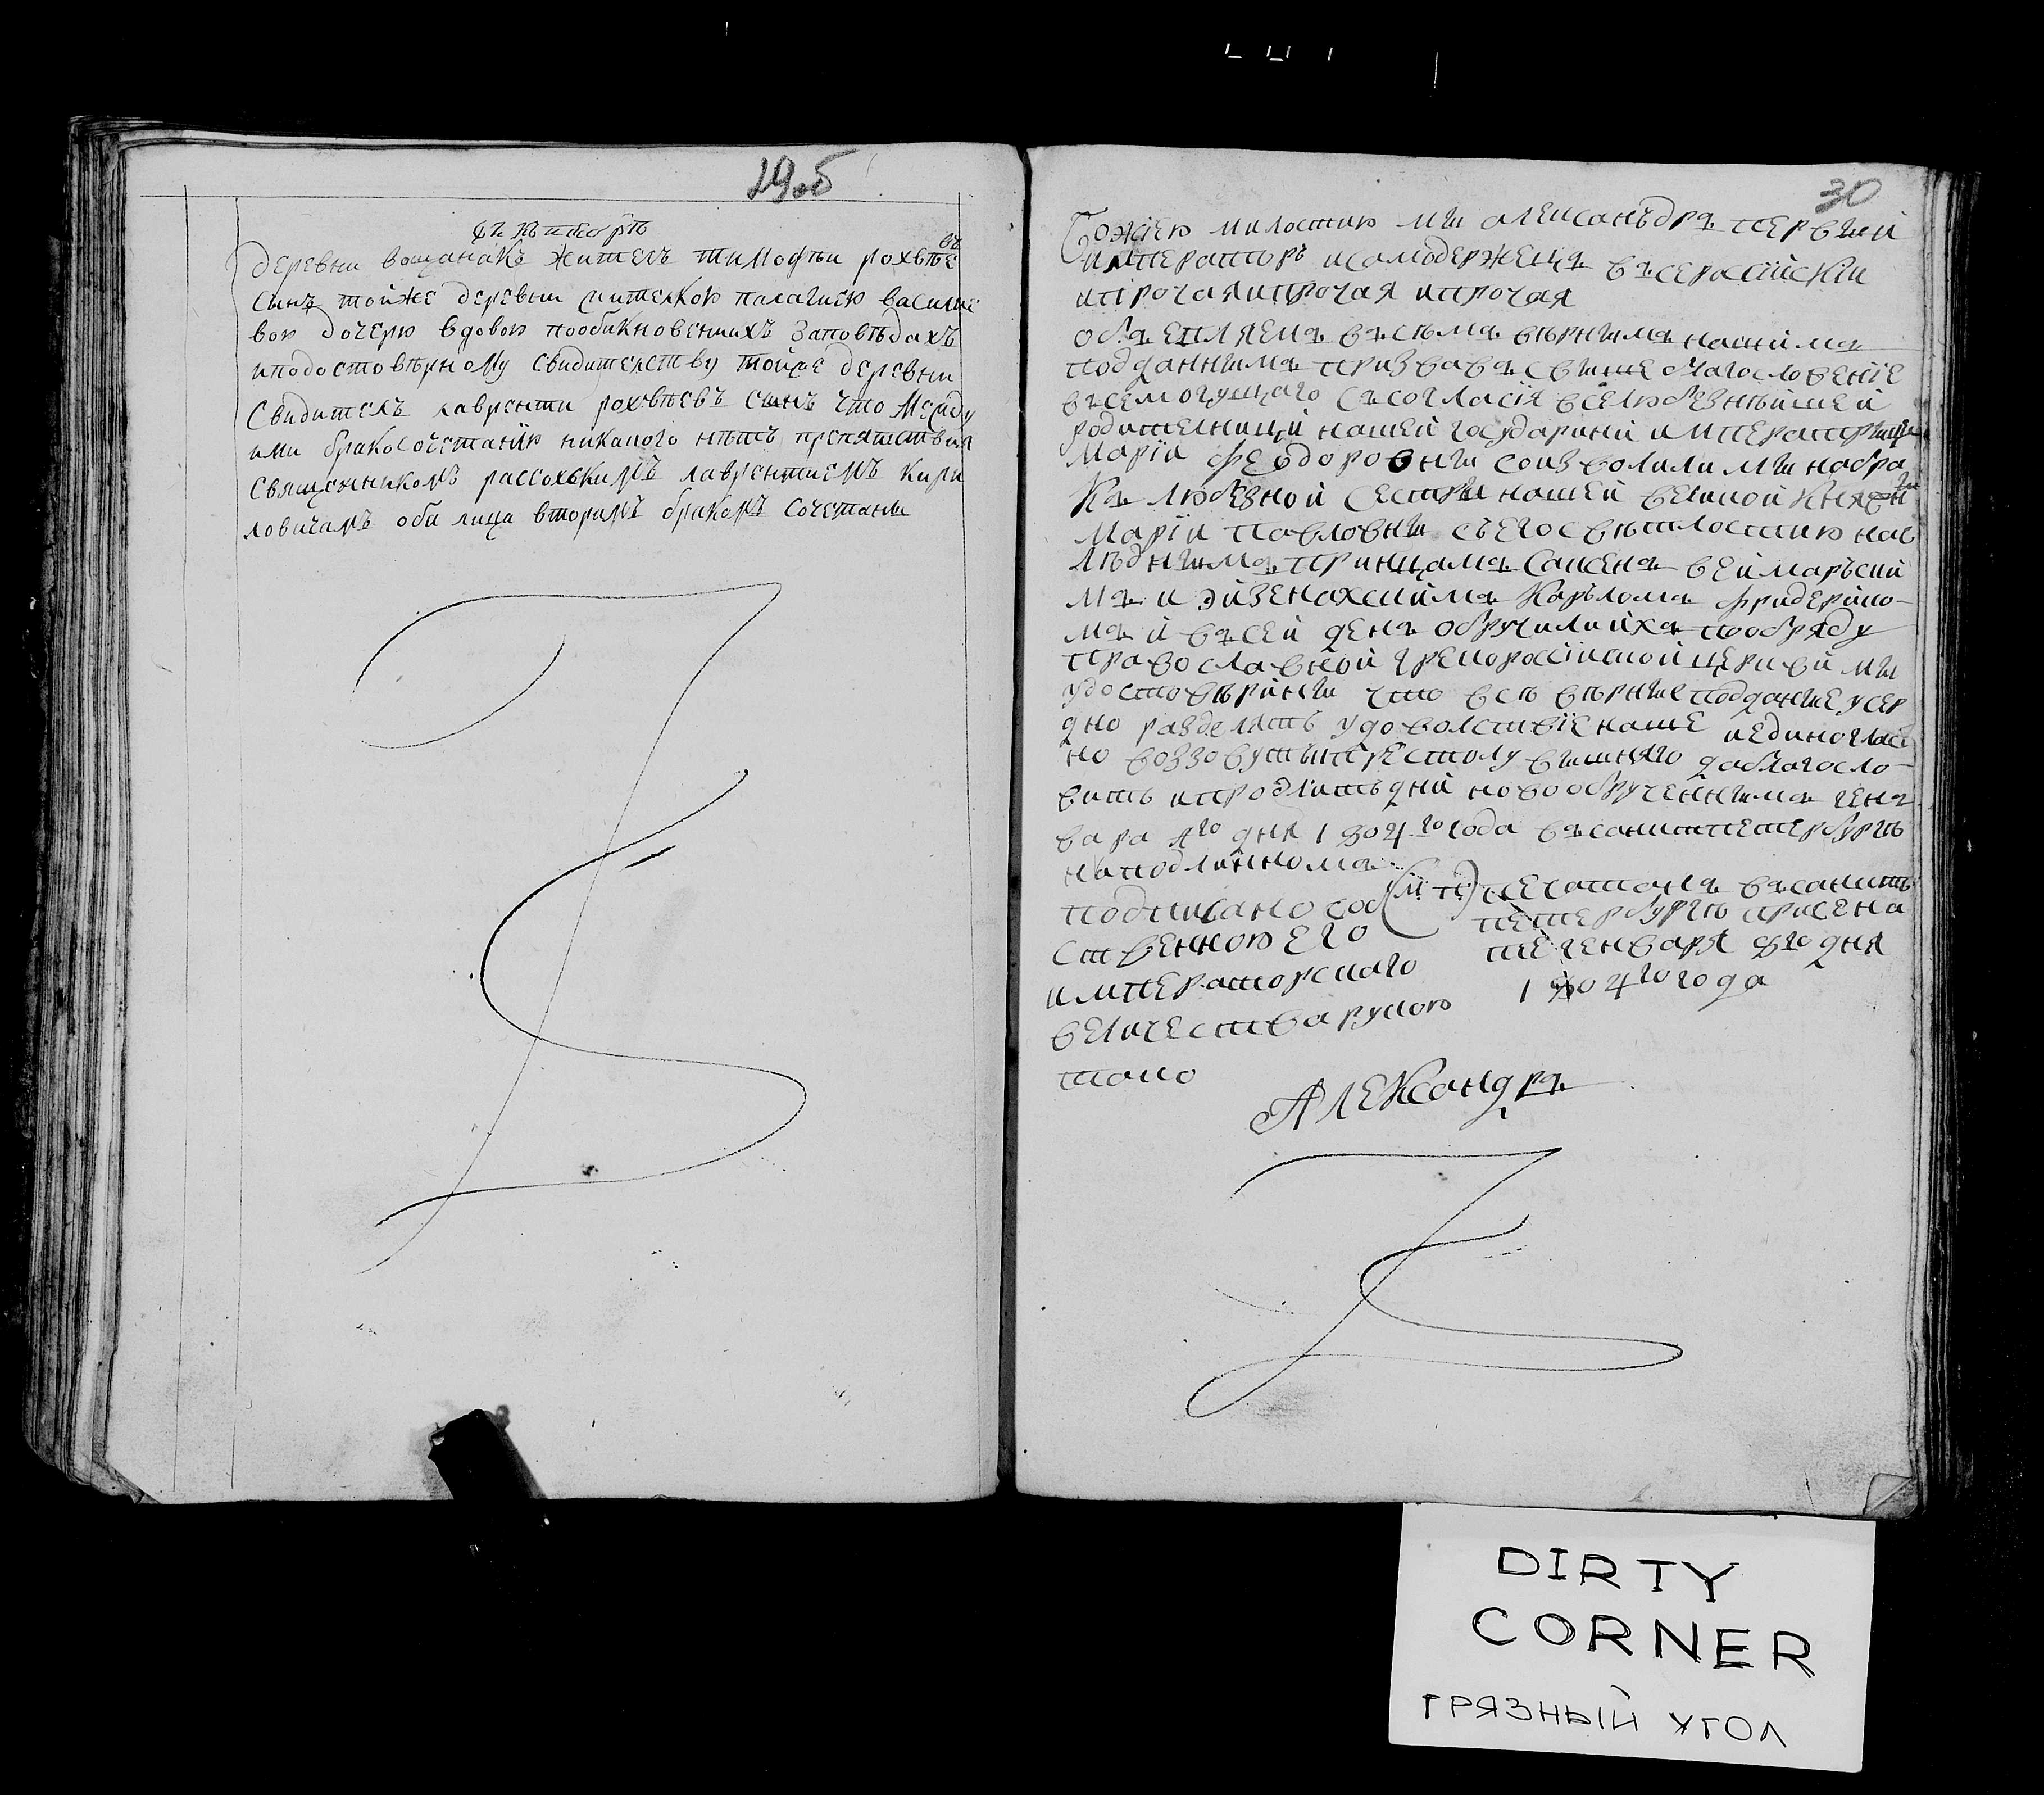 29об
деревни вощанакъ житель тимофѣи рохвѣе
въ
синъ тойже деревни жителкою палагиею василие
вою дочерю вдовою пообикновеннихъ заповѣдахъ
иподостовѣрному свидителству тойже деревни
свидителъ лавренти рохвѣевъ синъ что между
ими бракосочетанїю никакого нѣтъ препятствия
священникомъ рассохъкимъ лаврентиемъ кири
ловичамъ оби лица вторимъ бракомъ сочетани
30
Божїею милостию мы алеѯанъдръ первый
императоръ исамодержецъ въсеросїискїи
ипрочая ипрочая ипрочая
объевляемъ въсѣмъ вѣрнымъ нашимъ
подданнымъ призвавъ свыше благословенїе
въсемогущаго съсогласїя вселюбезнѣйшей
родителници нашей государини императрицы
марїи феодоровны соизволили мы набра
къ любезной сестры нашей великой княжны
марїи павловны съего свѣтлостию нас
лѣднымъ принцамъ саксенъ веймаръски
мъ и эйзенахскимъ карьломъ фридерико-
мъ и въсей денъ обручили ихъ пообряду
православной грекороссїйской церкви мы
удостовѣрины что всѣ вѣрные подданые усер
дно разделятъ удоволствїе наше иединоглас
но воззовутъ къпрестолу вышняго даблагосло-
вить ипродлить дни новообрученнымъ ген
вара 1го дня 1804го года въсанктпетербургѣ
наподлинномъ
подписано соб
ственною его
императорскаго
величества рукою
тако
(м п)
печатанъ въсанкт
петербургѣ присена
те генваря го дня
1804го года
Александръ
DIRTY
CORNER
ГРЯЗНЫЙ УГОЛ